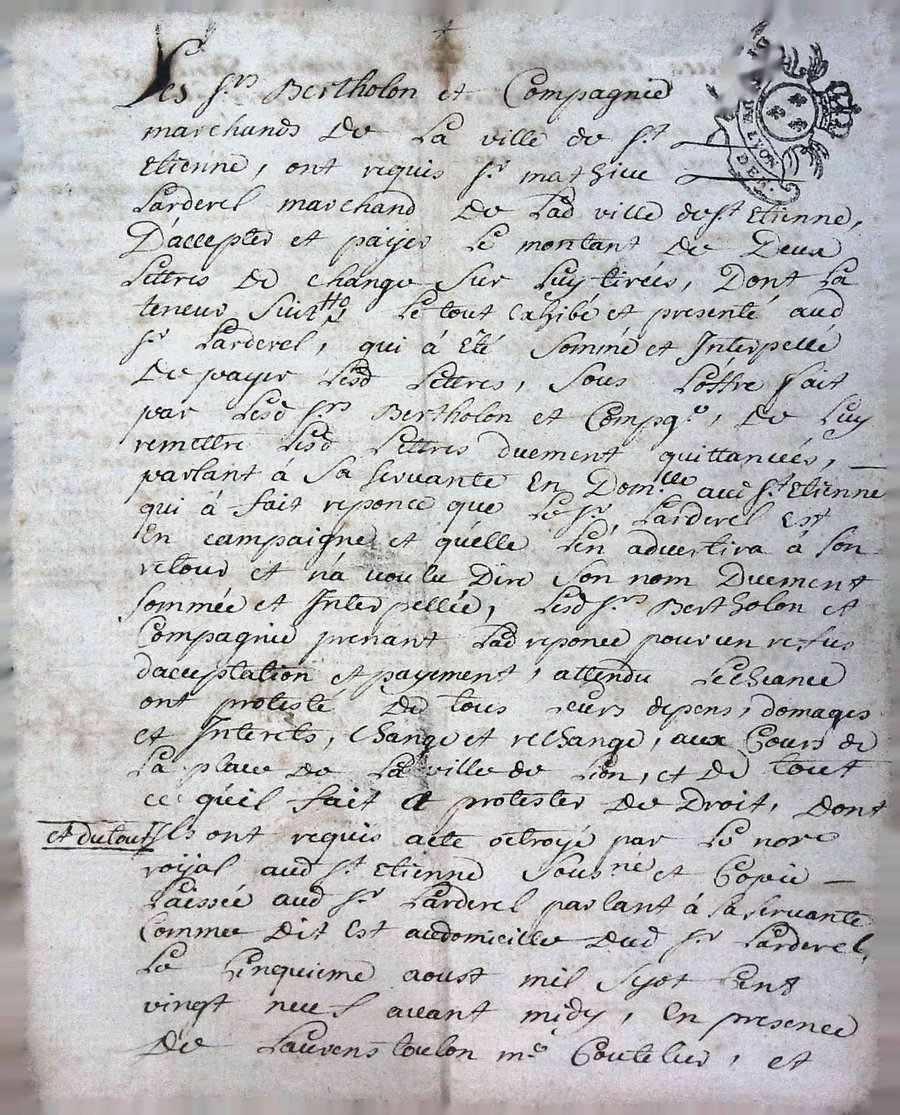 Les Srs Bertholon et Compagnie
marchands De La ville de St
Etienne, ont requis Sr mathieu
Larderel marchand De Lad ville de St Etienne,
D'accepter et payer Le montant de Deux
Lettres De change Sur Luy tirées, Dont La
teneur Suit, Le tout exhibé et presenté aud
Sr Larderel, qui à Eté Sommé et Interpellé
De payer Lesd Lettres, Sous L'offre fait
par Lesd Srs Bertholon et Compe, De Luy
remettre Lesd Lettres duement quittancées,
parlant à Sa Servante En Domlle aud St Etienne
qui à fait reponce que Le Sr Larderel Est
En campaigne et qu'elle L'en advertira à Son
retour et n'a voulu Dire Son nom Duement
Sommée et Interpellée, Lesd Srs Bertholon et
Compagnie prenant Lad reponce pour un refus
d'acceptation et payement, attendu L'echeance
ont protesté De tous Leurs depens, domages
et Interets, Change et rechange, aux Cours de
La place De La ville de Lion, et De tout
ce qu'il fait a protester De Droit, Dont
et du tout Ils ont requis acte octroyé par Le nore
royal aud St Etienne Sousné et Copie
Laissée aud Sr Larderel parlant à Sa Servante
Comme Dit Est au domicille Dud Sr Larderel,
Le Cinquieme aoust mil Sept Cent
vingt neuf avant midy, En presence
De Laurens toulon me Coutelier, et
DE LYON